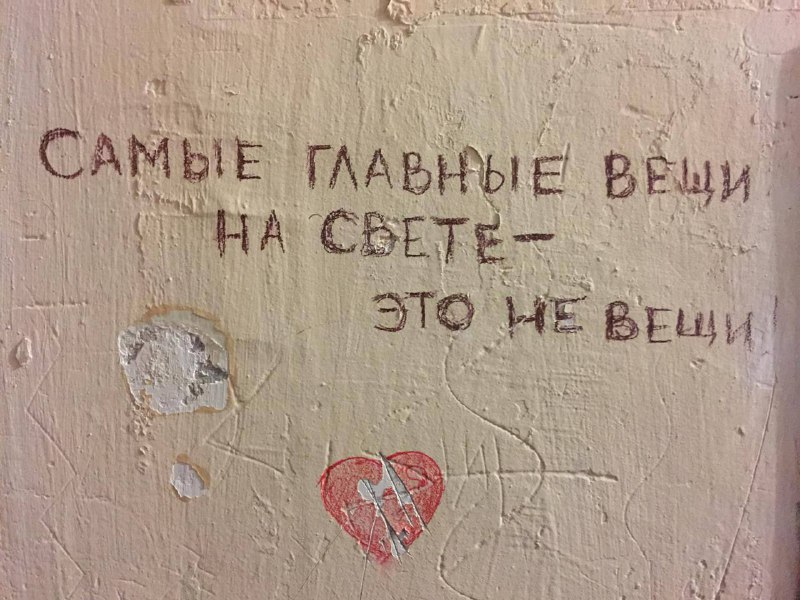 САМЫЕ ГЛАВНЫЕ ВЕЩИ
НА СВЕТЕ —
ЭТО НЕ ВЕЩИ!